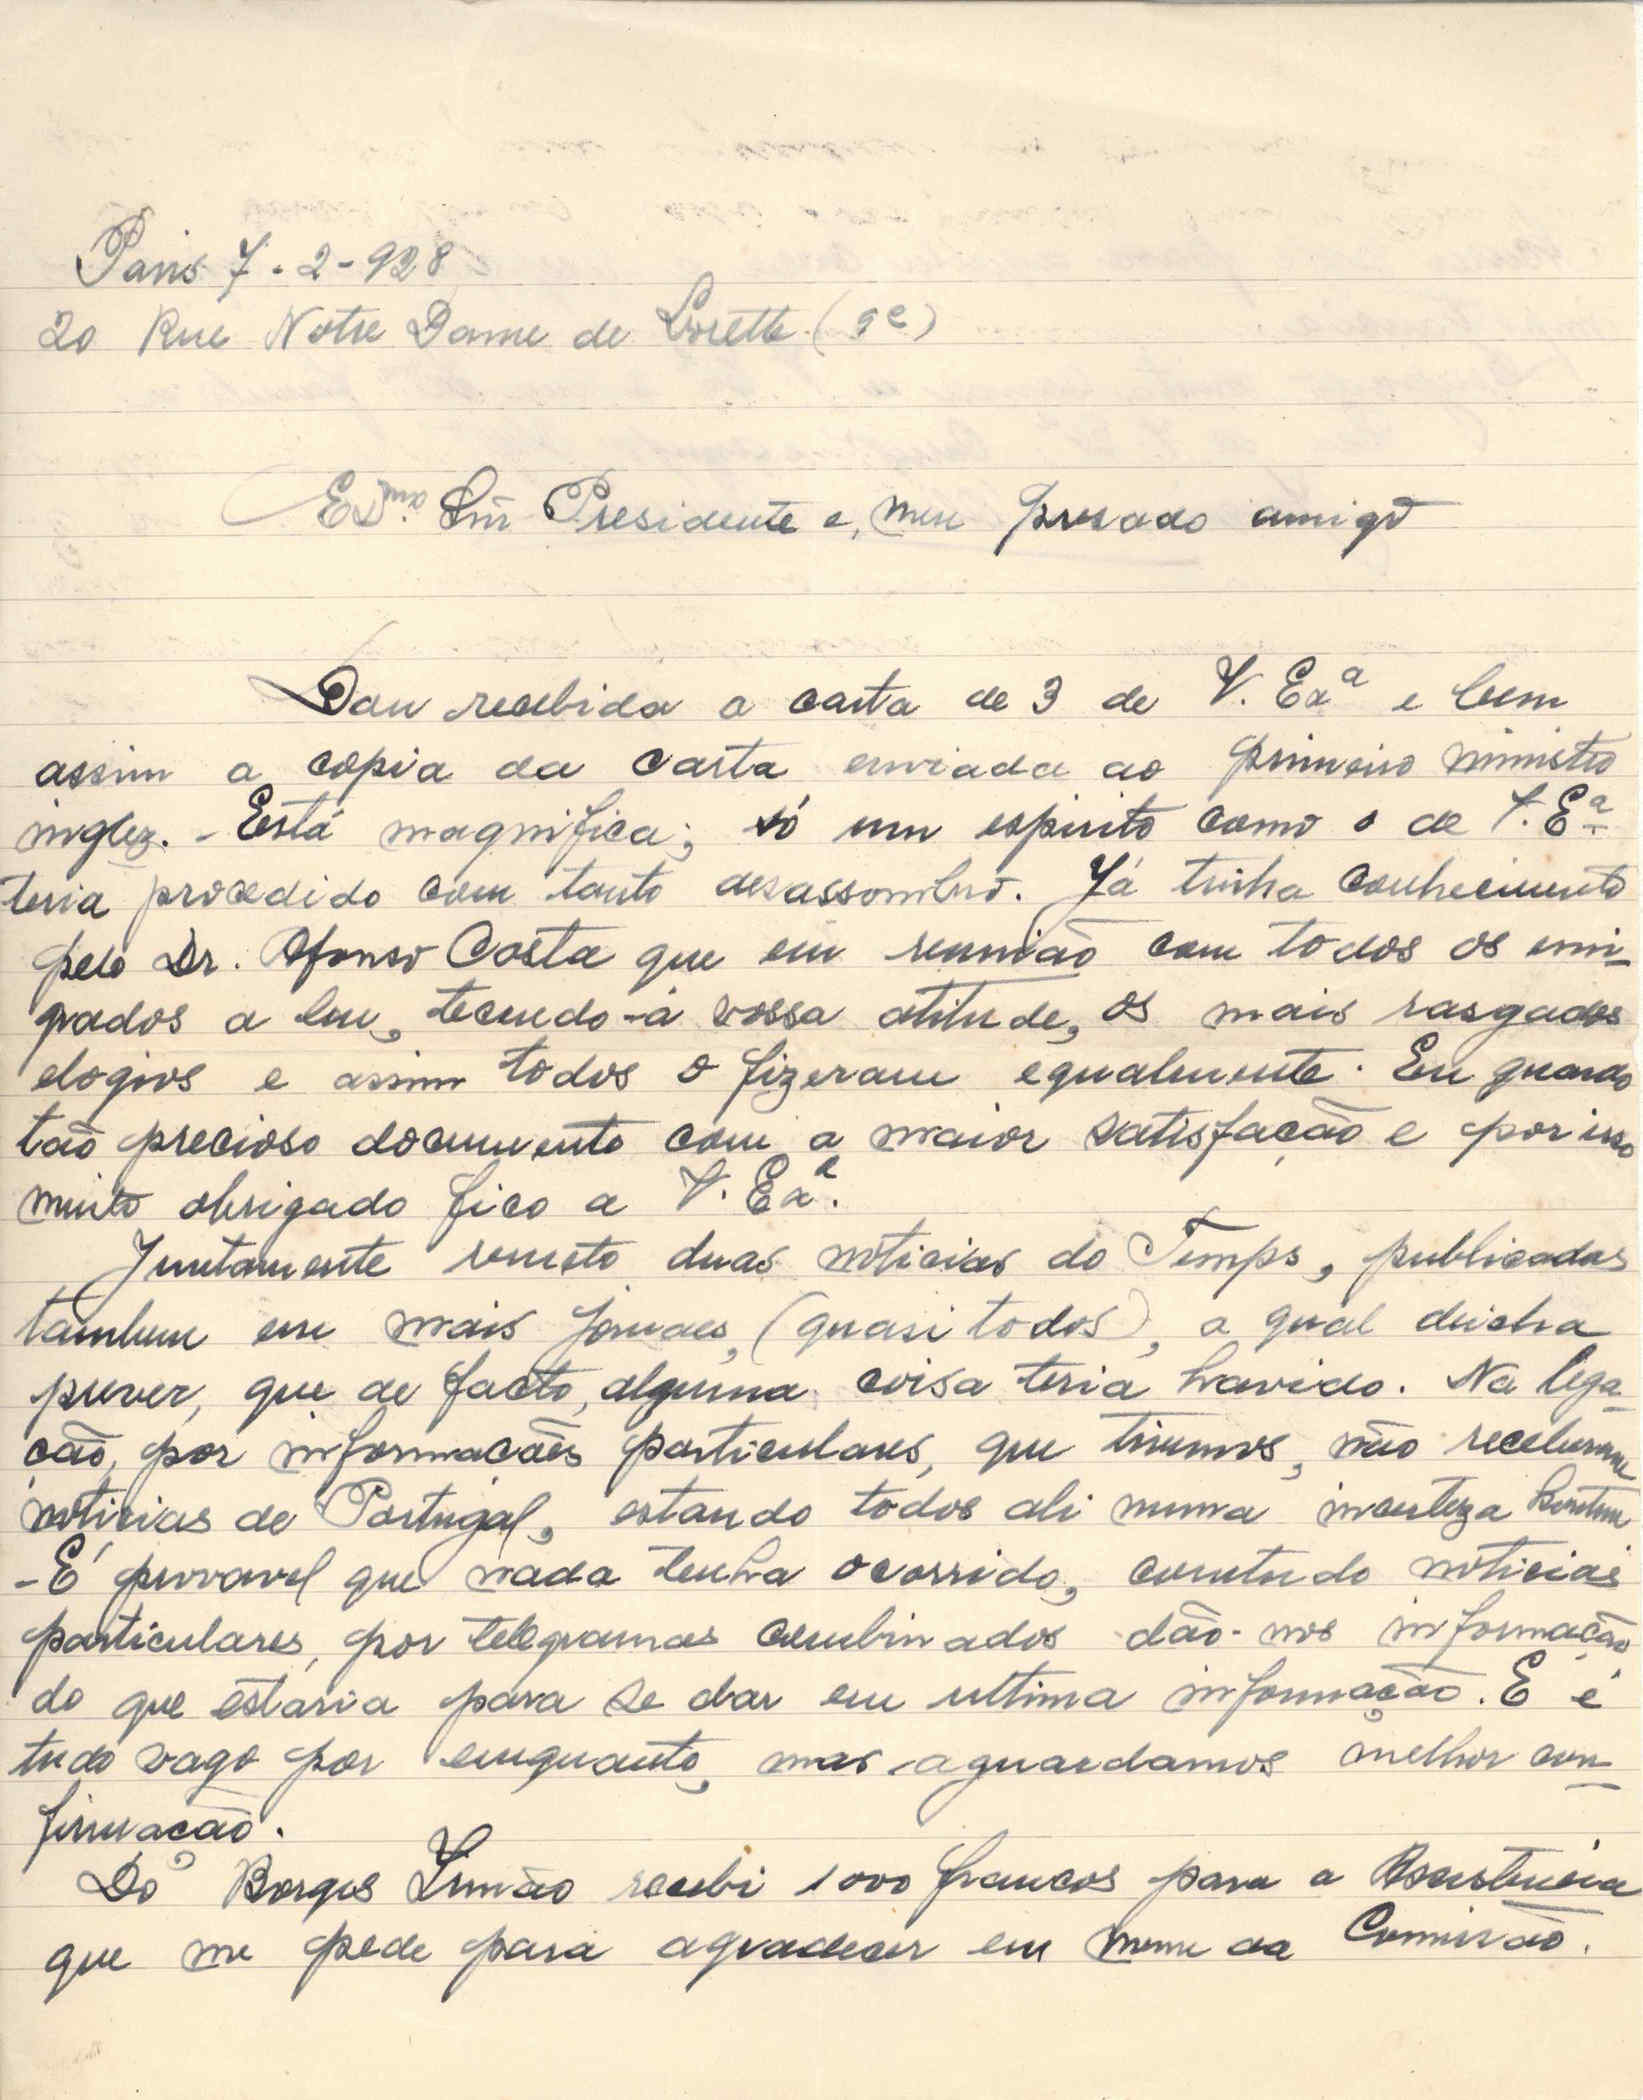 Paris 7-2-928
20 Rue Notre Dame de Lorette (9e)
Exmo. Snr Presidente e, meu presado amigo
Dou recebida a carta de 3 de V. Exa e bem
assim a copia da carta enviada ao primeiro ministro
inglez. - Está magnifica; só um espirito como o de V. Exa.
teria procedido com tanto desassombro. Já tinha conhecimento
pelo Dr. Afonso Costa que em reunião com todos os emi-
grados a leu, tecendo-á vossa atitude, os mais rasgados
elogios e assim todos o fizeram egualmente. Eu guardo
tão precioso documento com a maior satisfação e por isso
muito obrigado fico a V. Exa.
Juntamente remeto duas noticias do Temps, publicadas
tambem em mais jornaes, (quasi todos), a qual deicha
prever, que de facto, alguma coisa teria havido. Na lega-
ção, por informações particulares, que tivemos, não receberam
noticias de Portugal, estando todos ali numa incerteza
- É provavel que nada tenha ocorrido, comtudo noticias
particulares, por telegramas combinados dão-nos informação
do que estaria para se dar em ultima informação. E é
tudo vago por emquanto, mas aguardamos melhor con-
firmação.
Do Borges Irmão recebi 1000 francos para a Assistencia
que me pede para agradecer em nome da Comissão.